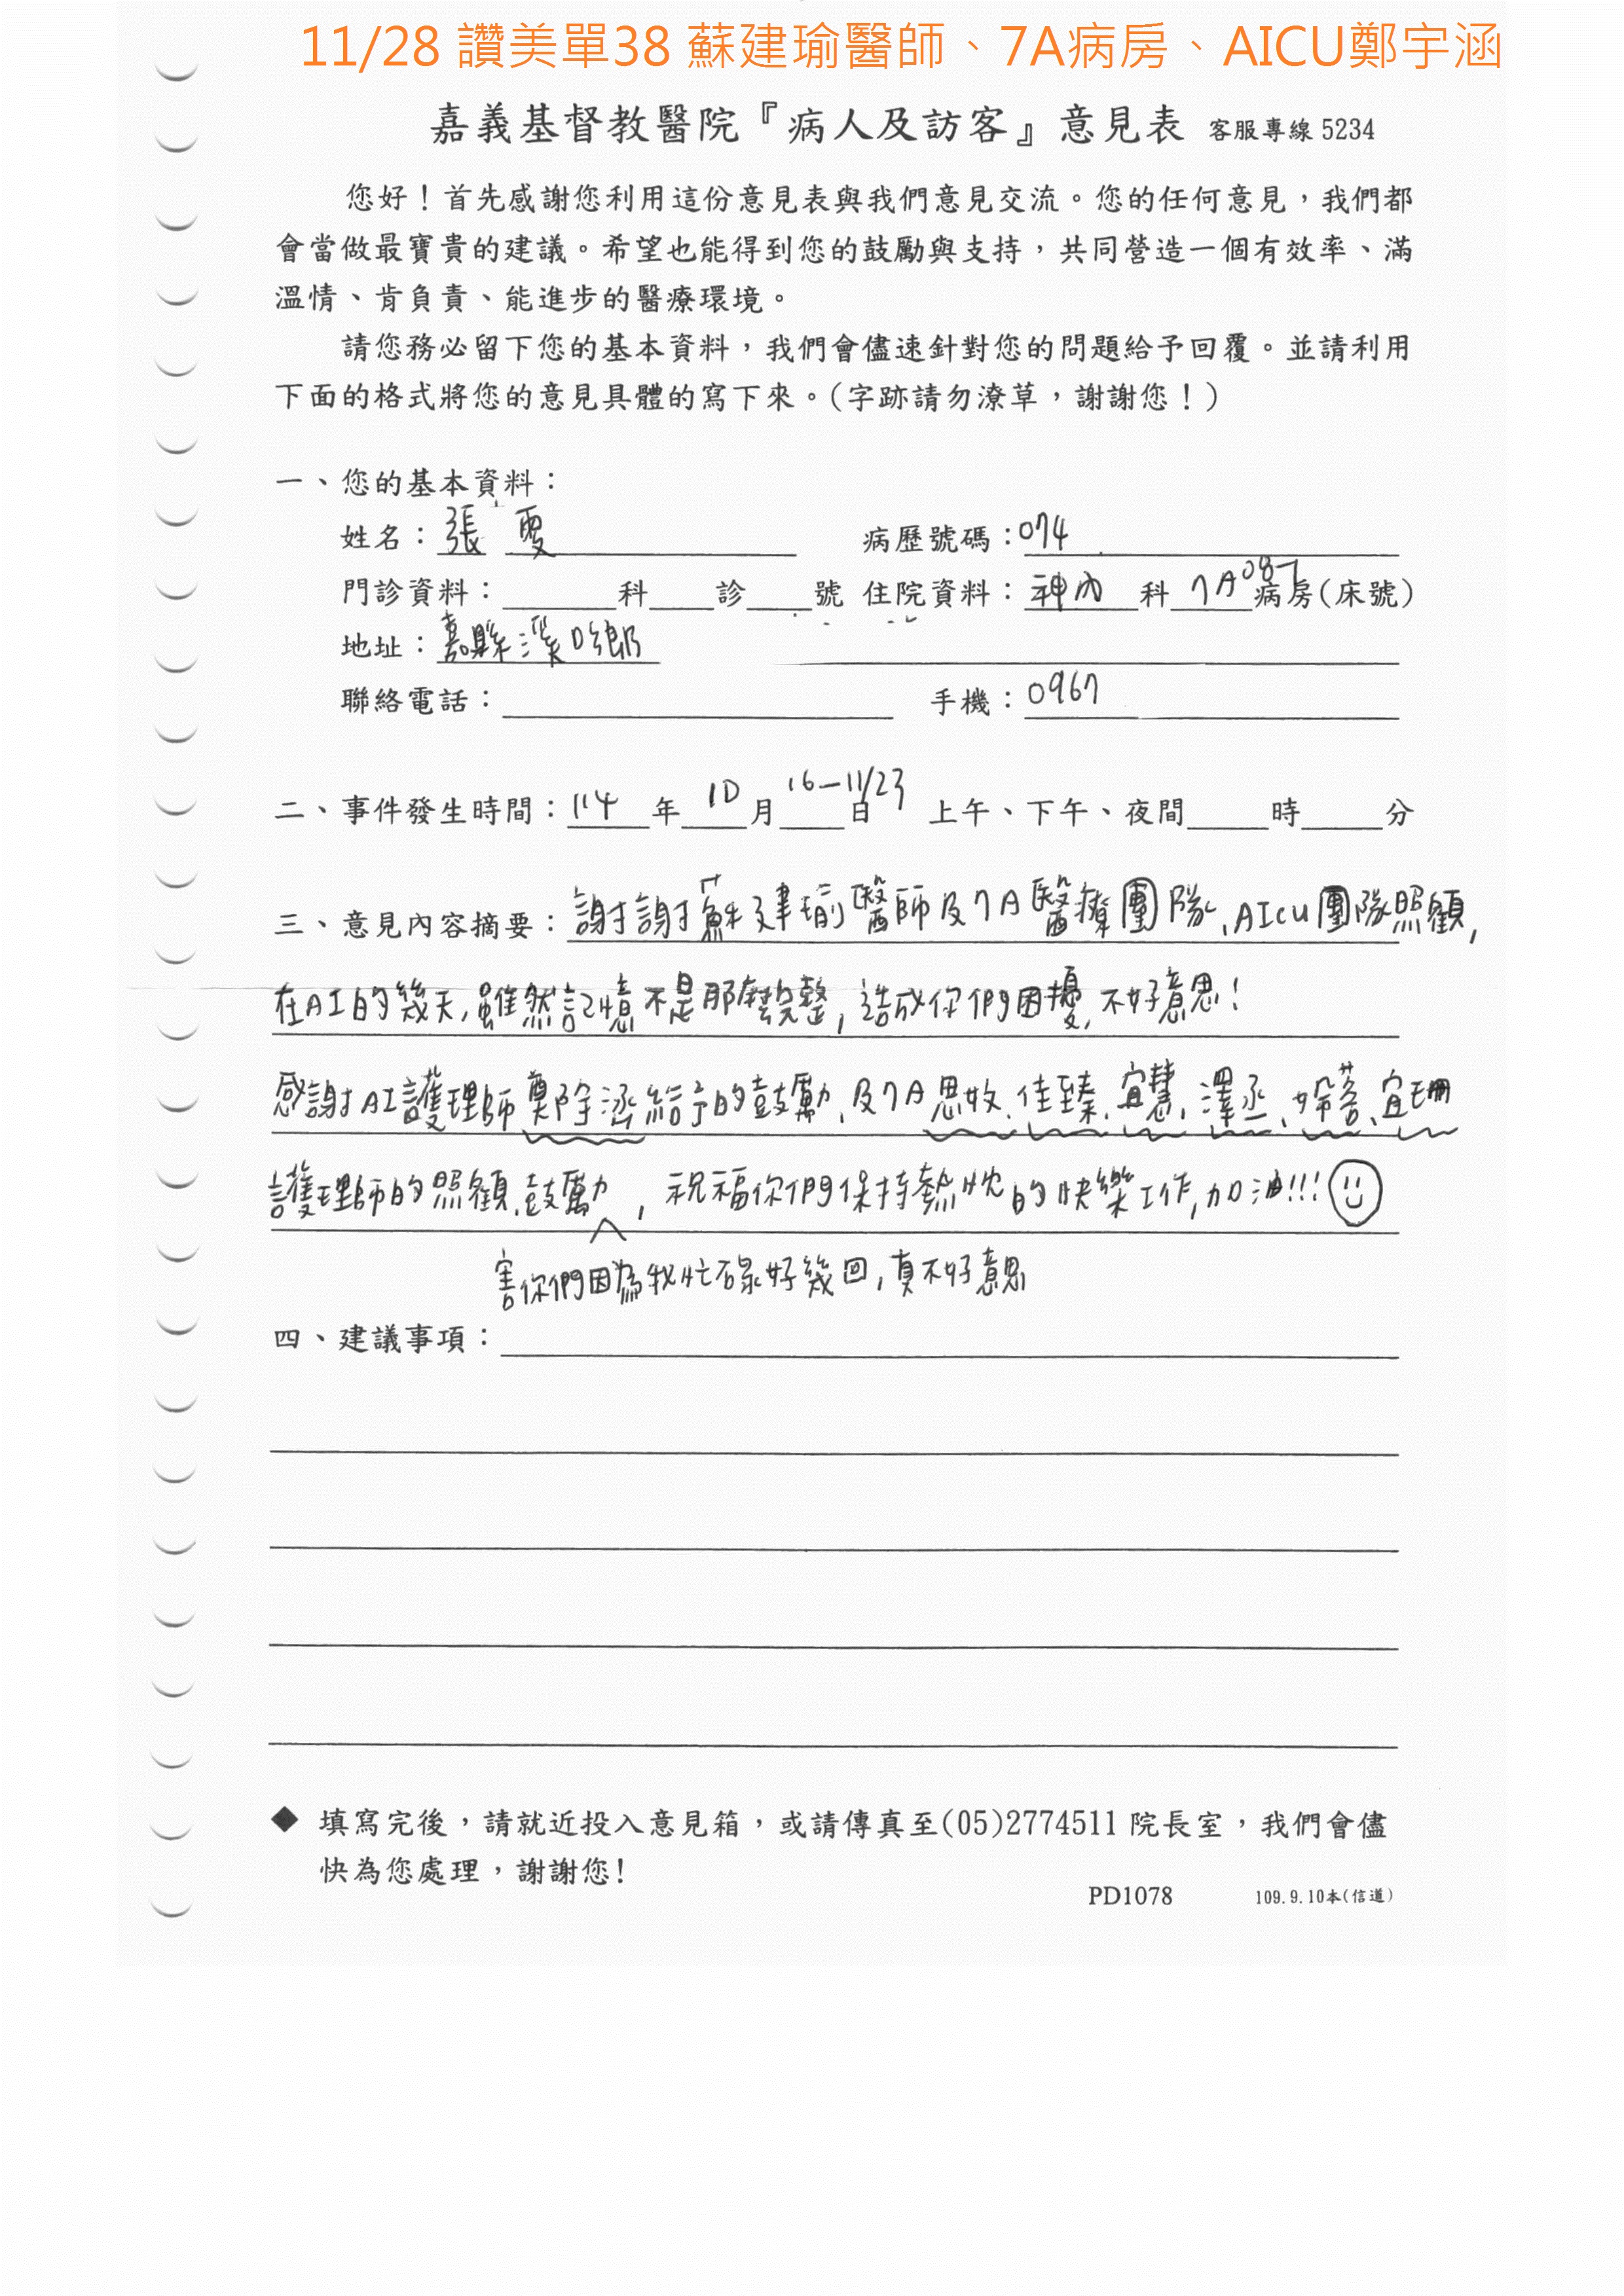 11/28 讚美單38 蘇建瑜醫師、7A病房、AICU鄭宇涵
嘉義基督教醫院『病人及訪客』意見表 客服專線 5234
您好！首先感謝您利用這份意見表與我們意見交流。您的任何意見，我們都
會當做最寶貴的建議。希望也能得到您的鼓勵與支持，共同營造一個有效率、滿
溫情、肯負責、能進步的醫療環境。
請您務必留下您的基本資料，我們會儘速針對您的問題給予回覆。並請利用
下面的格式將您的意見具體的寫下來。(字跡請勿潦草，謝謝您！)
一、您的基本資料：
姓名：張 雯 病歷號碼：074
門診資料： 科 診 號 住院資料：神內 科 7A087 病房(床號)
地址：嘉縣溪口鄉
聯絡電話： 手機：0967
二、事件發生時間：114 年 10 月 16-11/23 日 上午、下午、夜間 時 分
三、意見內容摘要：謝謝蘇建瑜醫師及7A醫療團隊、AICU團隊照顧,
在AI的幾天,雖然記憶不是那麼完整,造成你們困擾,不好意思!
感謝AI護理師鄭 涵給予的鼓勵、及7A思妏、佳臻、宜慧、澤丞、 、宜珊
護理師的照顧、鼓勵,祝福你們保持熱忱的快樂工作,加油!!!
害你們因為我忙碌好幾回,真不好意思
四、建議事項：
◆ 填寫完後，請就近投入意見箱，或請傳真至(05)2774511 院長室，我們會儘
快為您處理，謝謝您!
PD1078 109.9.10本(信道)